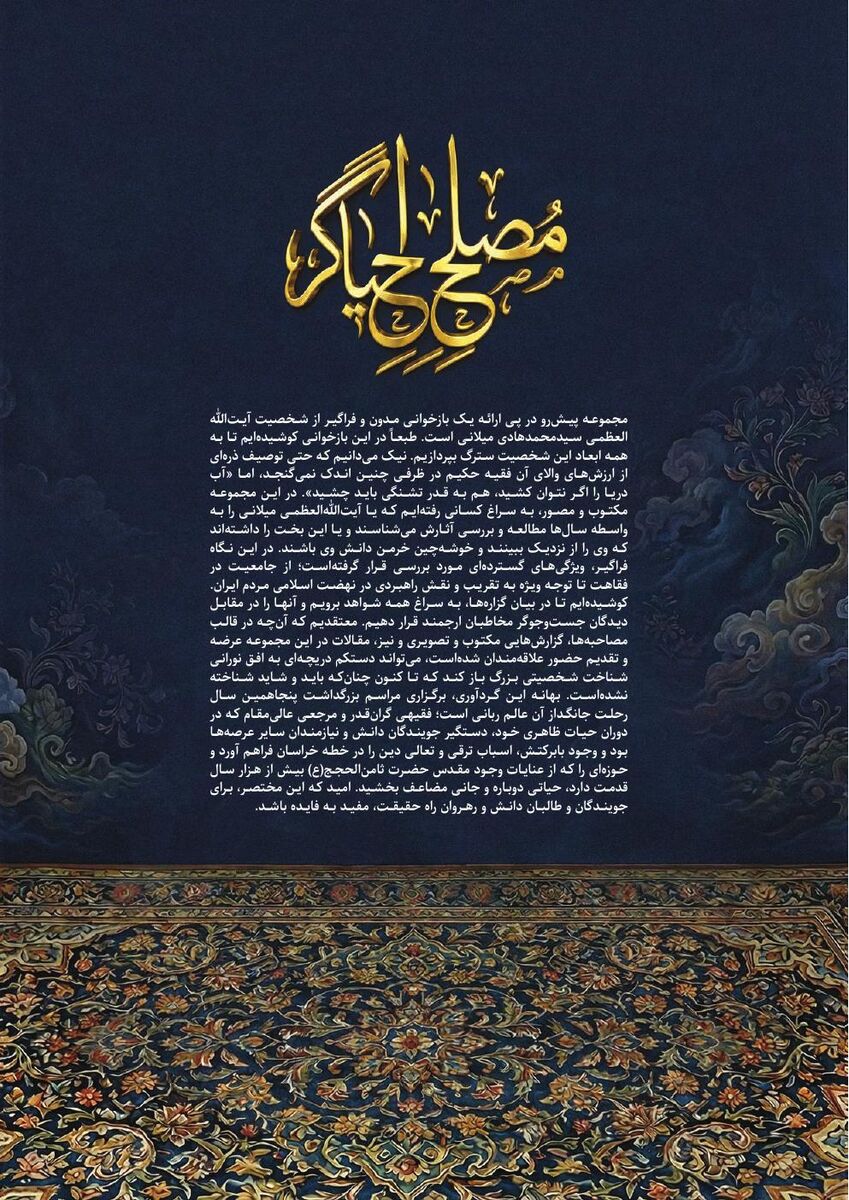 مُصلحِ اِحیاگر
مجموعه پیش‌رو در پی ارائه یک بازخوانی مدون و فراگیر از شخصیت آیت‌الله
العظمی سیدمحمدهادی میلانی است. طبعاً در این بازخوانی کوشیده‌ایم تا به
همه ابعاد این شخصیت سترگ بپردازیم. نیک می‌دانیم که حتی توصیف ذره‌ای
از ارزش‌های والای آن فقیه حکیم در ظرفی چنین اندک نمی‌گنجد، اما «آب
دریا را اگر نتوان کشید، هم به قدر تشنگی باید چشید». در این مجموعه
مکتوب و مصور، به سراغ کسانی رفته‌ایم که یا آیت‌الله‌العظمی میلانی را به
واسطه سال‌ها مطالعه و بررسی آثارش می‌شناسند و یا این بخت را داشته‌اند
که وی را از نزدیک ببینند و خوشه‌چین خرمن دانش وی باشند. در این نگاه
فراگیر، ویژگی‌های گسترده‌ای مورد بررسی قرار گرفته‌است؛ از جامعیت در
فقاهت تا توجه ویژه به تقریب و نقش راهبردی در نهضت اسلامی مردم ایران.
کوشیده‌ایم تا در بیان گزاره‌ها، به سراغ همه شواهد برویم و آنها را در مقابل
دیدگان جست‌وجوگر مخاطبان ارجمند قرار دهیم. معتقدیم که آن‌چه در قالب
مصاحبه‌ها، گزارش‌هایی مکتوب و تصویری و نیز، مقالات در این مجموعه عرضه
و تقدیم حضور علاقه‌مندان شده‌است، می‌تواند دستکم دریچه‌ای به افق نورانی
شناخت شخصیتی بزرگ باز کند که تا کنون چنان‌که باید و شاید شناخته
نشده‌است. بهانه این گردآوری، برگزاری مراسم بزرگداشت پنجاهمین سال
رحلت جانگداز آن عالم ربانی است؛ فقیهی گران‌قدر و مرجعی عالی‌مقام که در
دوران حیات ظاهری خود، دستگیر جویندگان دانش و نیازمندان سایر عرصه‌ها
بود و وجود بابرکتش، اسباب ترقی و تعالی دین را در خطه خراسان فراهم آورد و
حوزه‌ای را که از عنایات وجود مقدس حضرت ثامن‌الحجج(ع) بیش از هزار سال
قدمت دارد، حیاتی دوباره و جانی مضاعف بخشید. امید که این مختصر، برای
جویندگان و طالبان دانش و رهروان راه حقیقت، مفید به فایده باشد.